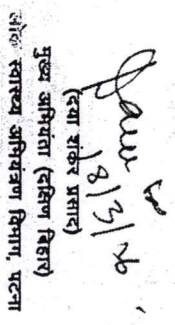 18/3/26
(दया शंकर प्रसाद)
मुख्य अभियंता (दक्षिण बिहार)
लोक स्वास्थ्य अभियंत्रण विभाग, पटना